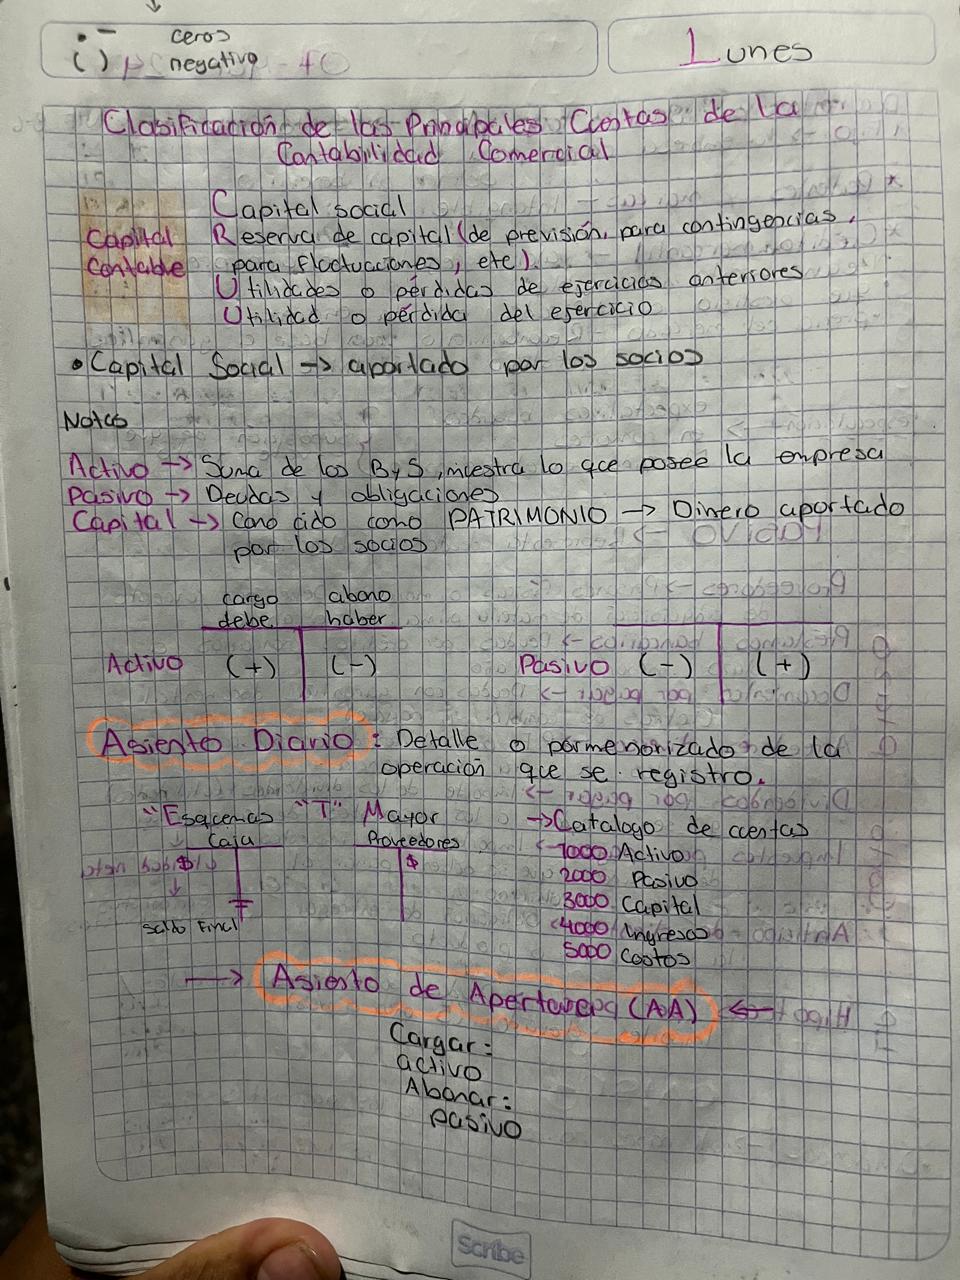 ceros
( ) negativo
Lunes
Clasificación de las Principales Cuentas de la
Contabilidad Comercial
Capital
Contable
Capital social
Reserva de capital (de previsión, para contingencias,
para fluctuaciones, etc).
Utilidades o pérdidas de ejercicios anteriores
Utilidad o pérdida del ejercicio
• Capital Social → aportado por los socios
Notas
Activo → Suma de los B y S, muestra lo que posee la empresa
Pasivo → Deudas y obligaciones
Capital → Cono cido como PATRIMONIO → Dinero aportado
por los socios
cargo abono
debe haber
Activo (+) (-) Pasivo (-) (+)
Asiento Diario: Detalle o pormenorizado de la
operación que se registro.
"Esquemas "T" Mayor
→Catalogo de cuentas
Caja Proveedores
$ $
1000 Activo
2000 Pasivo
3000 Capital
4000 Ingresos
5000 Costos
Saldo Final
→ Asiento de Apertura (AA) ←
Cargar:
activo
Abonar:
pasivo
Scribe